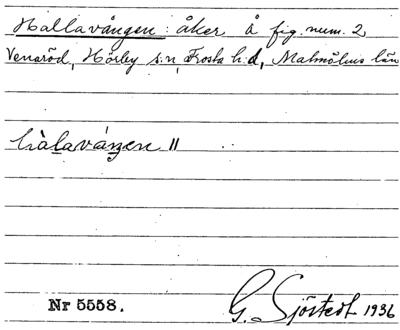 Hallavången : åker å fig. num. 2
Venaröd, Hörby s:n, Frosta h:d, Malmöhus län
hàlaváŋen II
Nr 5558.
G. Sjöstedt 1936